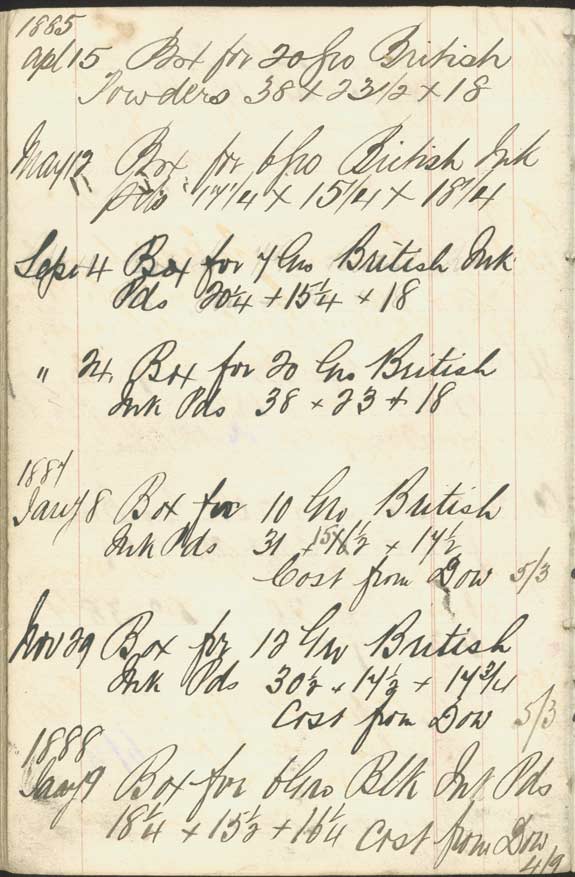 1885
Apl 15 Box for 20 Gro British
Powders 38 x 23 1/2 x 18
May 12 Box for 6 Gro British Ink
Pds 17 1/4 x 15 1/4 x 18 1/4
Sep 4 Box for 7 Gro British Ink
Pds 20 1/4 + 15 1/4 + 18
" 24. Box for 20 Gro British
Ink Pds 38 x 23 + 18
1887
Jany 8 Box for 10 Gro British
Ink Pds 31 x 15 1/2 x 17 1/2
Cost from Dow 5/3
Nov 29 Box for 12 Gro British
Ink Pds 30 1/2 x 17 1/2 + 17 3/4
Cost from Dow 5/3
1888
Jany 9 Box for 6 Gro Blk Ink Pds
18 1/4 x 15 1/2 + 16 1/4 Cost from Dow
4/9